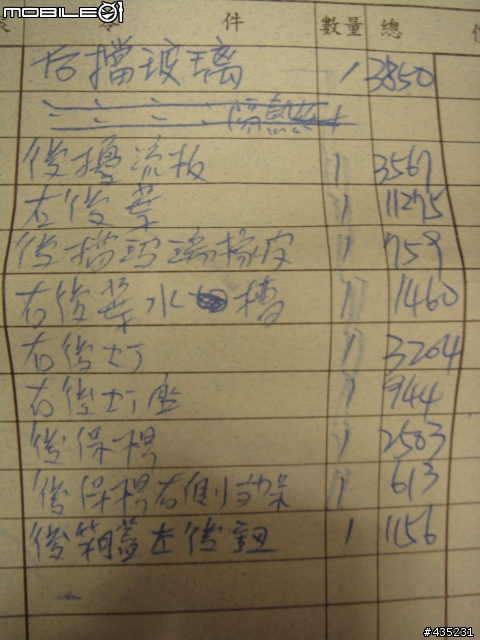 mobile01
件 數量 總
右擋玻璃 1 3850
隔熱紙 1
後擾流板 1 3567
右後葉 1 11275
後擋玻璃橡皮 1 759
右後葉水槽 1 1460
右後灯 1 3204
右後灯座 1 944
後保桿 1 2503
後保桿右側內架 1 613
後箱蓋左後鈕 1 1156
#435231